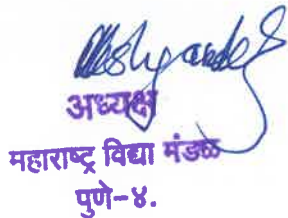 अध्यक्ष
महाराष्ट्र विद्या मंडळ
पुणे-४.